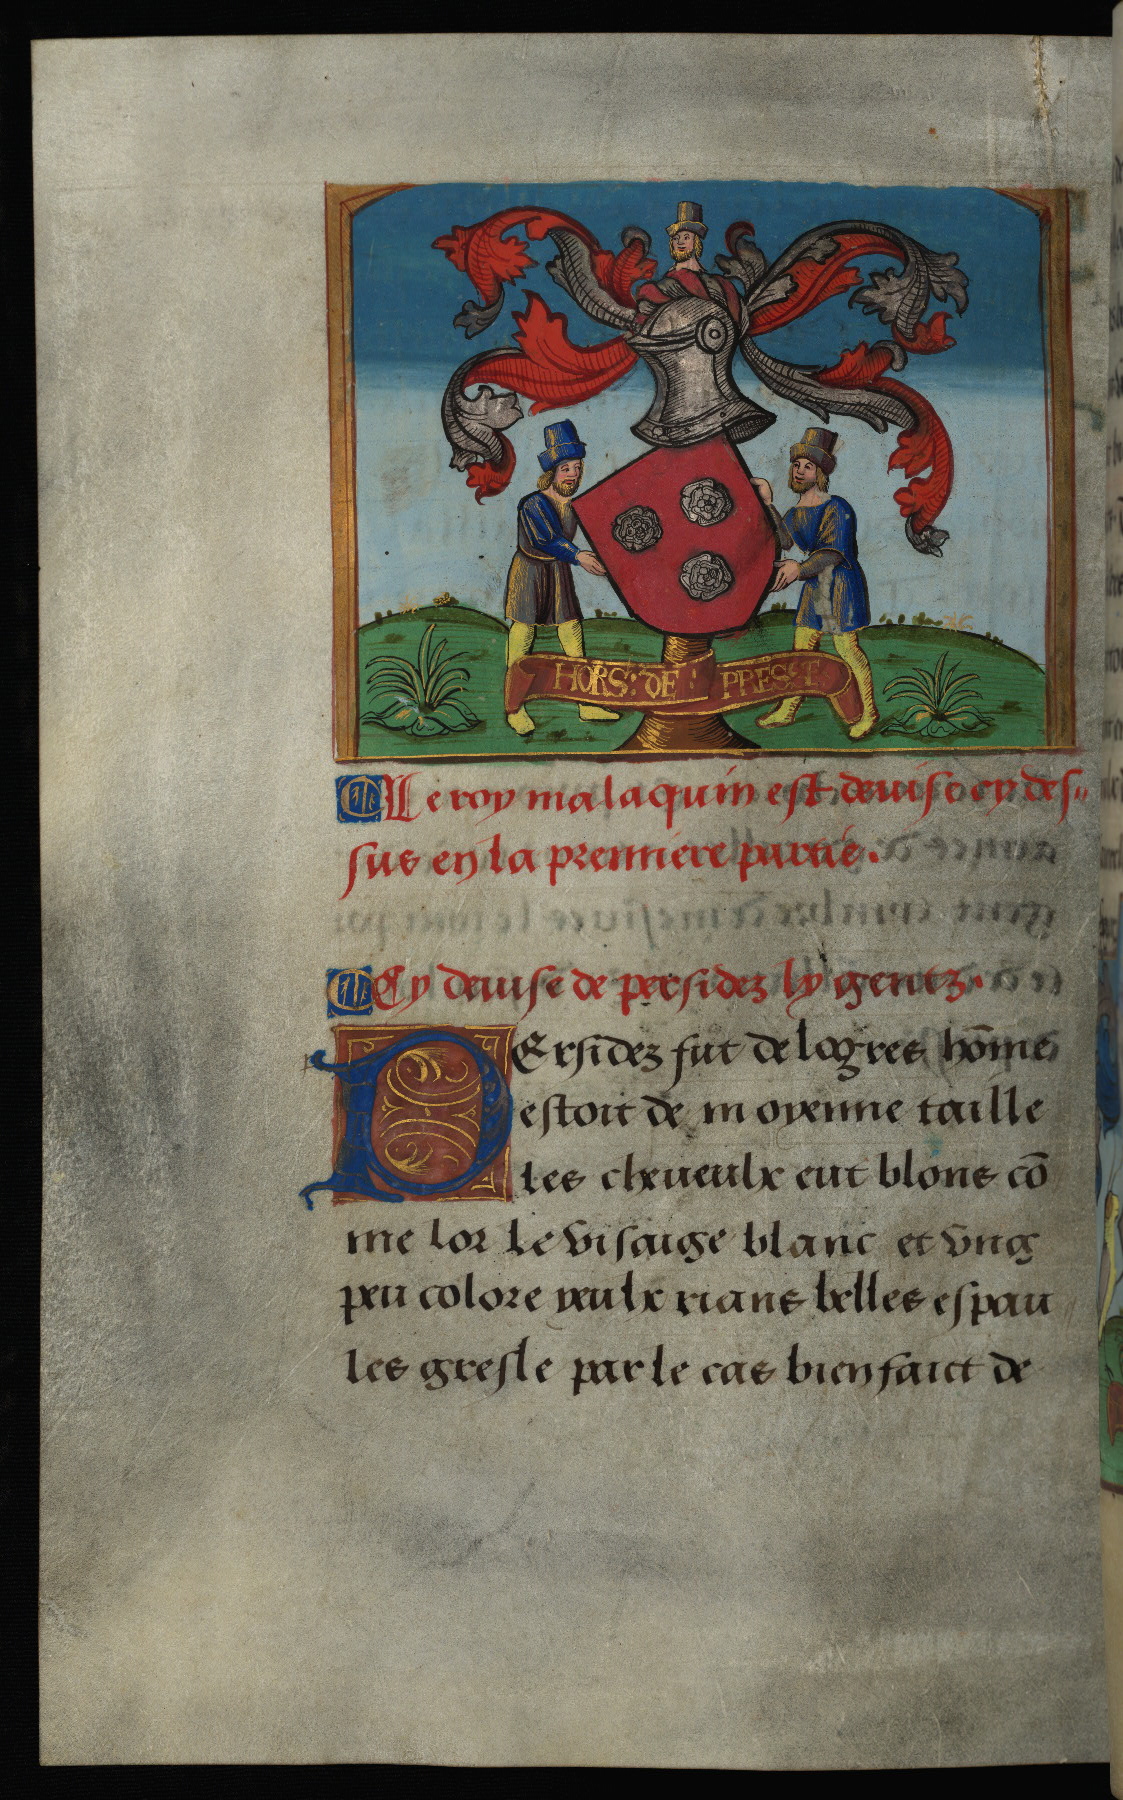 HORS: DE: PRES: T:
Le roy malaquin est devise cy des„
sus en la premiere partie.
Cy devise de persidez ly gentz.
PErsidez fut de logres hōme
estoit de moyenne taille
les cheveulx eut blons cō
me lor le visaige blanc et ung
peu colore yeulx rians belles espau
les gresle par le cas bien faict de